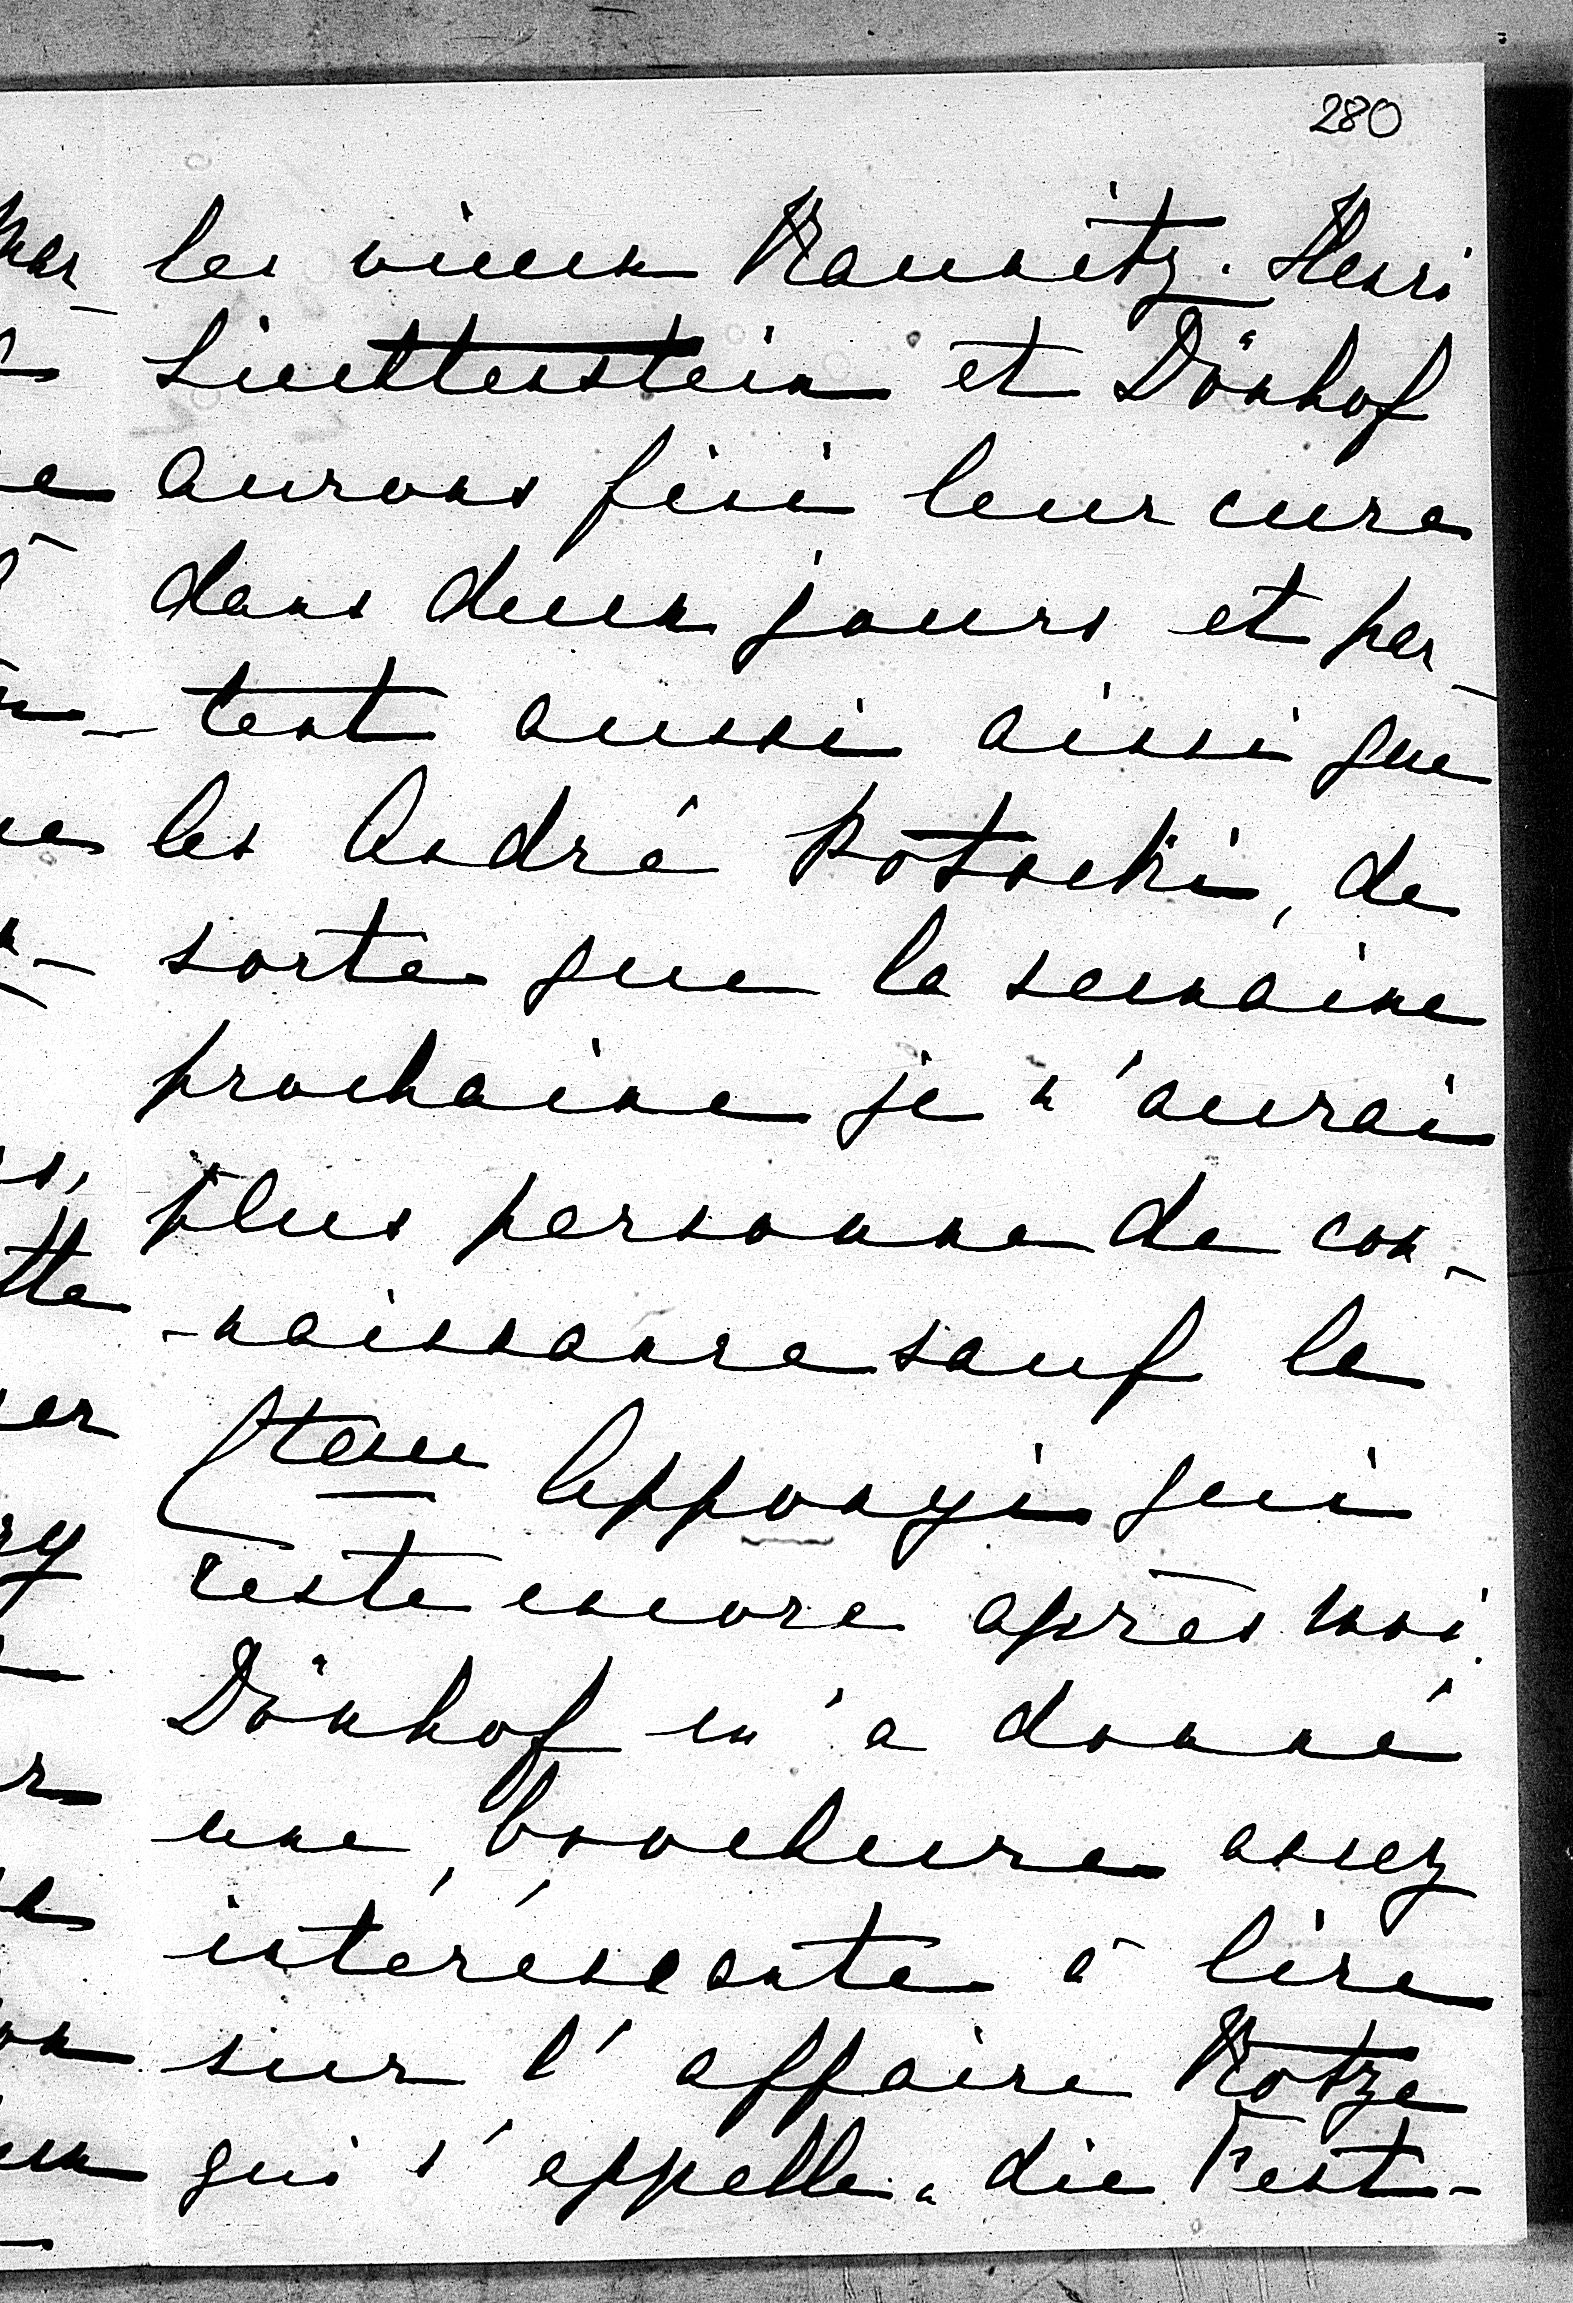 280
les vieux Kaunitz. Henri
Liechtenstein et Dönhof
aurons fini leur cure
dans deux jours et par-
-tent aussi ainsi que
les André Potocki, de
sorte que la semaine
prochaine je n'aurai
plus personne de con-
-naissance sauf la
Ctesse Apponyi qui
reste encore après moi.
Dönhof m'a donné
une brochure assez
intéressante à lire
sur l'affaire Kotze
qui s'appelle „die